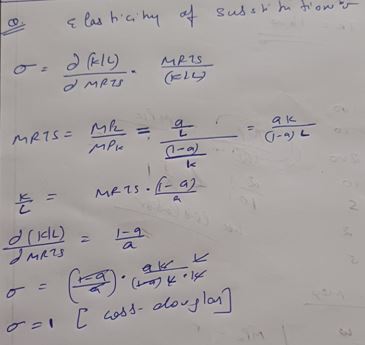 Q. Elasticity of substitution
σ = ∂(K/L)/∂MRTS · MRTS/(K/L)
MRTS = MP_L/MP_K = (a/L)/((1-a)/K) = aK/((1-a)L)
K/L = MRTS · (1-a)/a
∂(K/L)/∂MRTS = (1-a)/a
σ = ((1-a)/a) ·
σ = 1 [Coss-douglas]